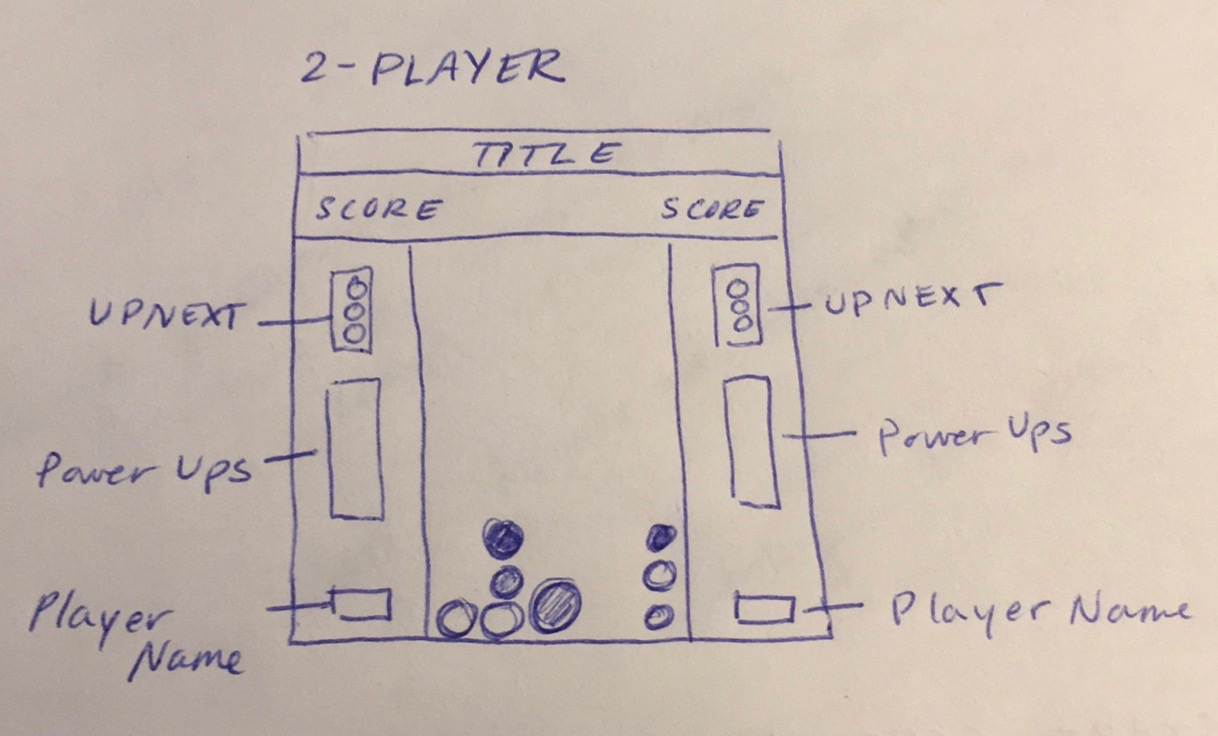 2-PLAYER
TITLE
SCORE SCORE
UPNEXT UPNEXT
Power Ups Power Ups
Player Name Player Name